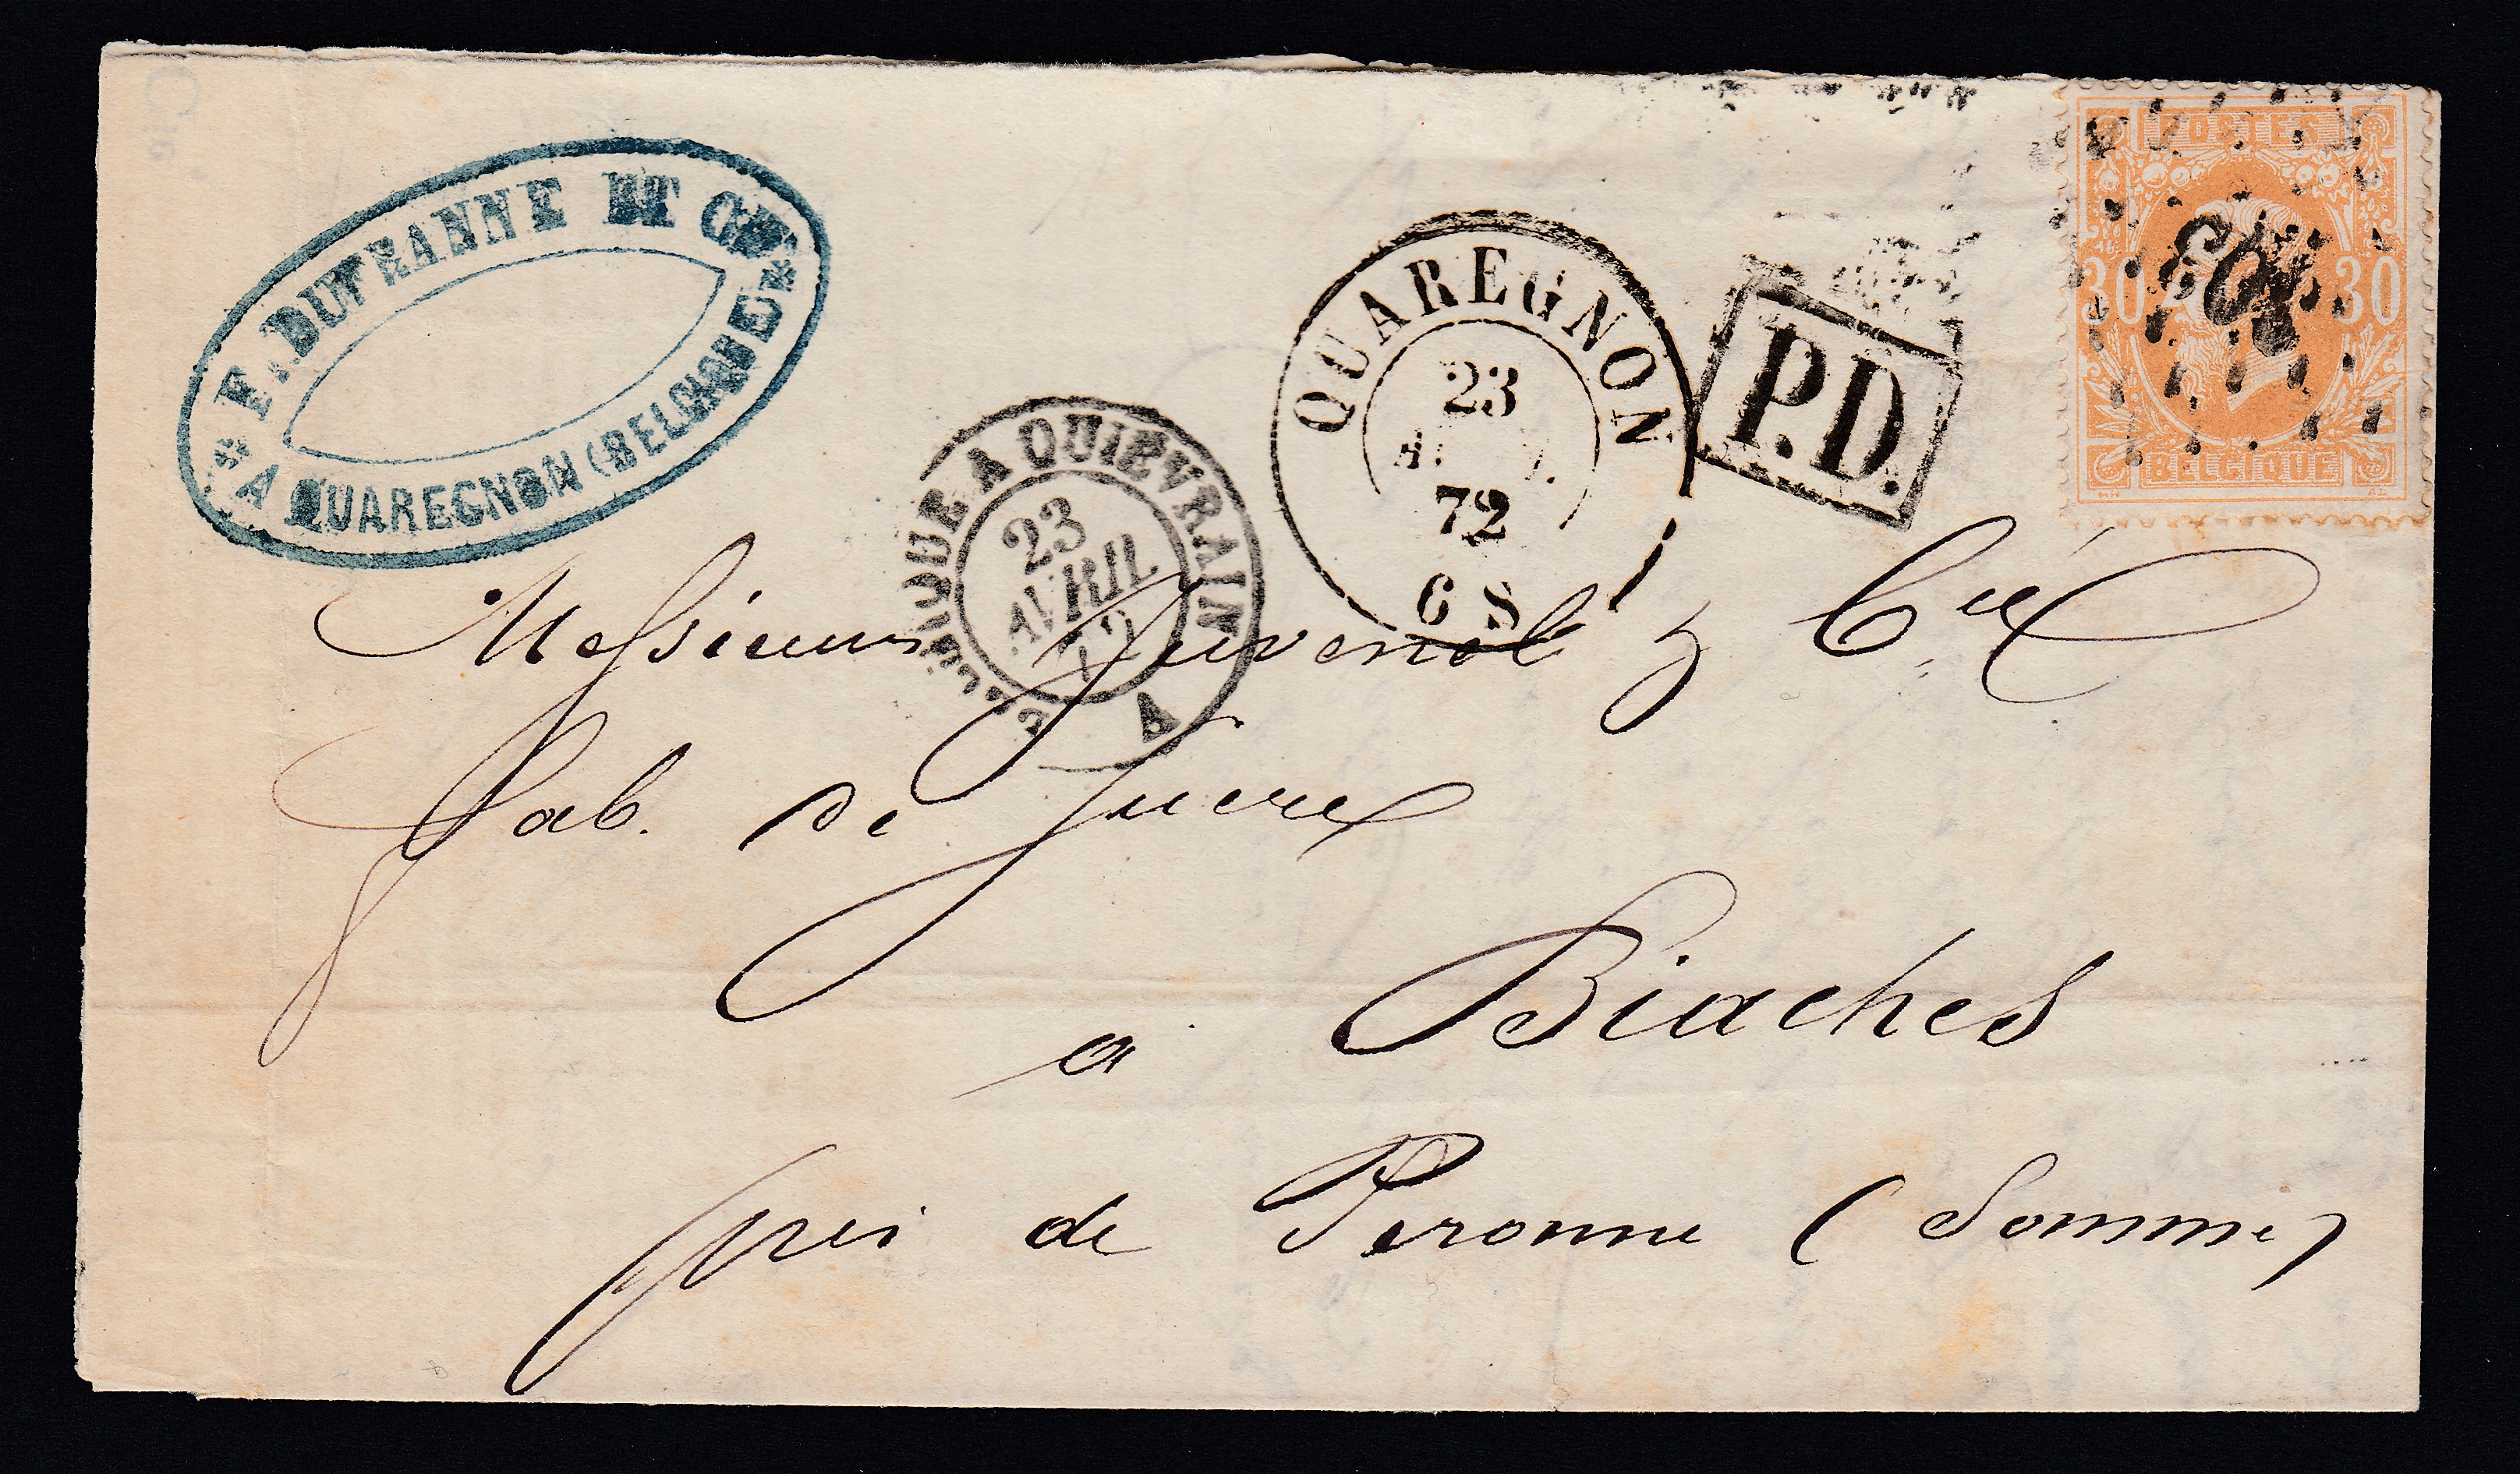 Fd. DUFRANNE ET CIE
A QUAREGNON (BELGIQUE)
QUAREGNON
23
72
6 S
P.D.
POSTES
30 30
BELGIQUE
BELGIQUE A QUIEVRAIN
23
AVRIL
72
A
Messieurs Juvenel & Cie
fab. de Sucre
a Biaches
près de Peronne (Somme)